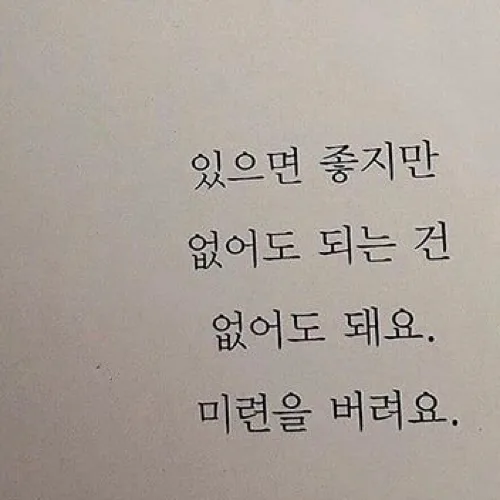 있으면 좋지만
없어도 되는 건
없어도 돼요.
미련을 버려요.